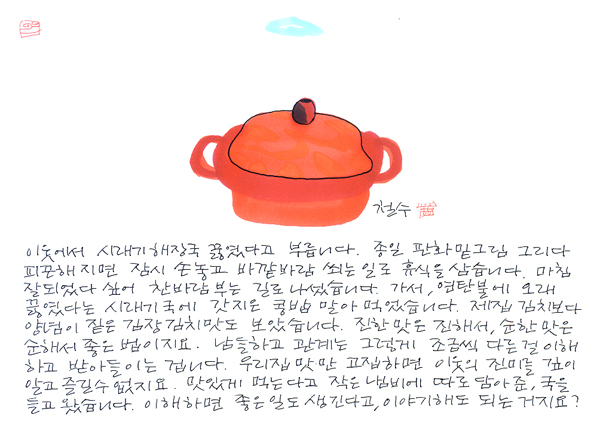 철수
이웃에서 시래기해장국 끓였다고 부릅니다. 종일 판화밑그림 그리다
피곤해지면 잠시 손놓고 바깥바람 쐬는 일로 휴식을 삼습니다. 마침
잘되었다 싶어 찬바람부는 길로 나섰습니다. 가서, 연탄불에 오래
끓였다는 시래기국에 갓지은 콩밥 말아 먹었습니다. 제집 김치보다
양념이 짙은 김장김치맛도 보았습니다. 진한맛은 진해서, 순한 맛은
순해서 좋은 법이지요. 남들하고 관계는 그렇게 조금씩 다른걸 이해
하고 받아들이는 겁니다. 우리집 맛만 고집하면 이웃의 진미를 깊이
알고 즐길수 없지요. 맛있게 먹는다고 작은냄비에 따로 담아준, 국을
들고 왔습니다. 이해하면 좋은일도 생긴다고, 이야기해도 되는 거지요?